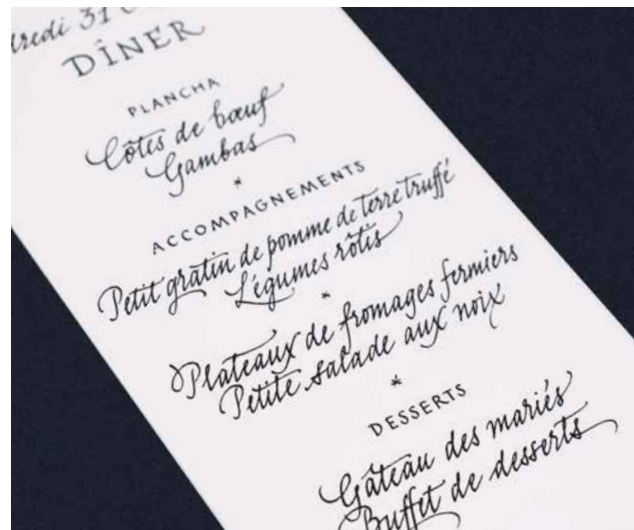 31
DÎNER
PLANCHA
Côtes de bœuf
Gambas
*
ACCOMPAGNEMENTS
Petit gratin de pomme de terre truffé
Légumes rôtis
*
Plateaux de fromages fermiers
Petite salade aux noix
*
DESSERTS
Gâteau des mariés
Buffet de desserts